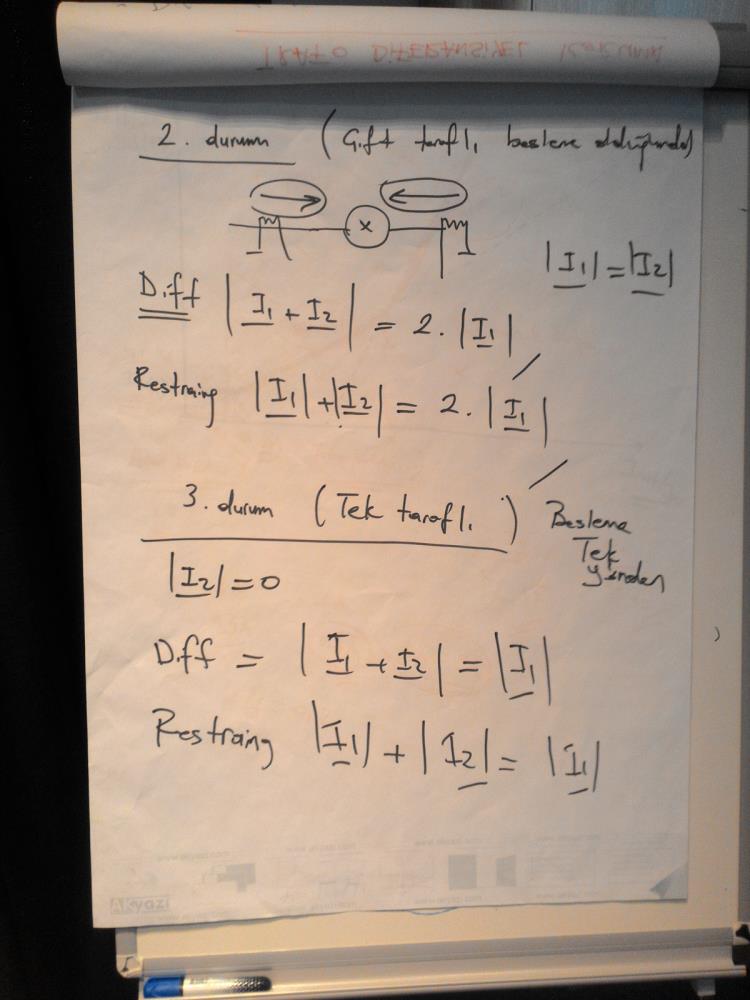 TRAFO DİFERANSİYEL KORUMA
2. durum (Çift taraflı besleme olduğunda)
x
|I1| = |I2|
Diff |I1 + I2| = 2. |I1|
Restraing |I1| + |I2| = 2. |I1|
3. durum (Tek taraflı)
Besleme
Tek
yönden
|I2| = 0
Diff = |I1 + I2| = |I1|
Restraing |I1| + |I2| = |I1|
AKyazı